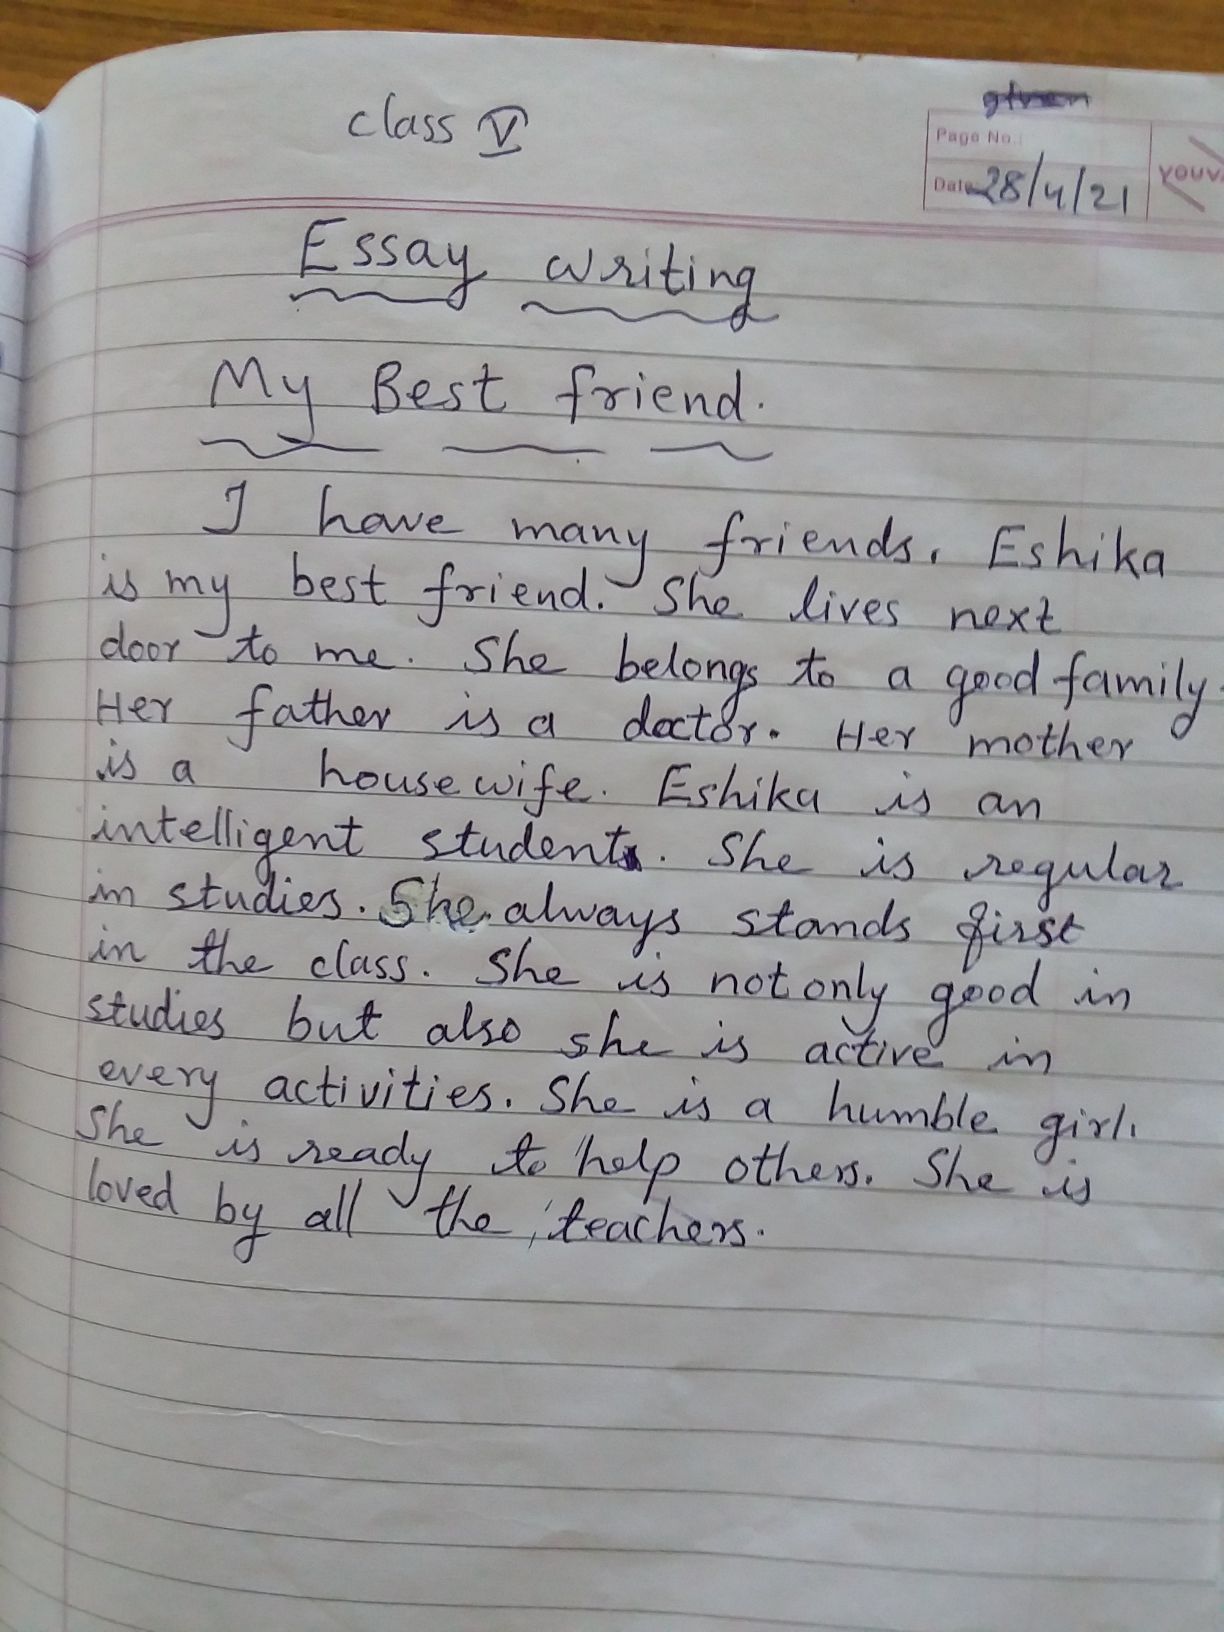 class V
Page No.:
Date 28/4/21
Essay writing
My Best friend.
I have many friends. Eshika
is my best friend. She lives next
door to me. She belongs to a good family.
Her father is a doctor. Her mother
is a housewife. Eshika is an
intelligent student. She is regular
in studies. She always stands first
in the class. She is not only good in
studies but also she is active in
every activities. She is a humble girl.
She is ready to help others. She is
loved by all the teachers.